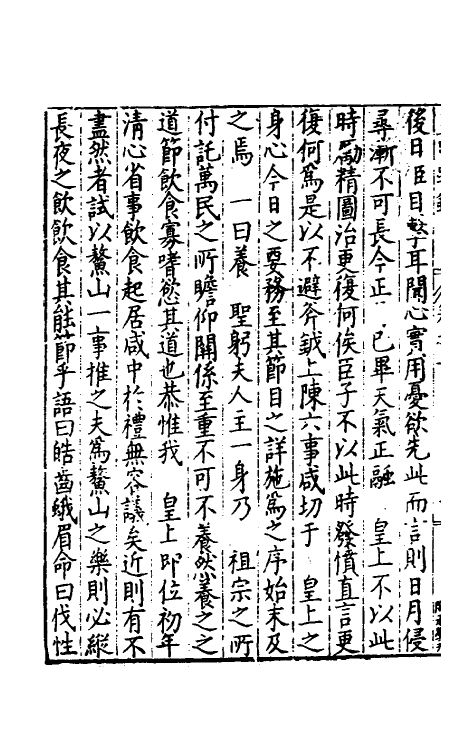 後日臣目擊耳聞心實用憂欲先此而言則日月侵
尋漸不可長今正 已畢天氣正融 皇上不以此
時勵精圖治更復何俟臣子不以此時發憤直言更
復何爲是以不避斧鉞上陳六事咸切于 皇上之
身心今日之要務至其節目之詳施爲之序始末及
之焉 一曰養 聖躬夫人主一身乃 祖宗之所
付託萬民之所瞻仰關係至重不可不養然養之之
道節飲食寡嗜慾其道也恭惟我 皇上即位初年
清心省事飲食起居咸中於禮無容議矣近則有不
盡然者試以鰲山一事推之夫爲鰲山之樂則必縱
長夜之飲飲食其能節乎語曰皓齒蛾眉命曰伐性